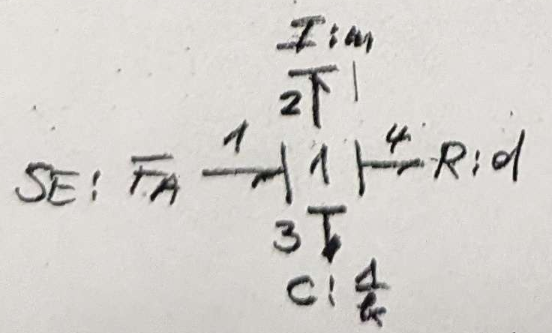 I:m
2
SE: FA 1 1 4 R:d
3
C: 1/k